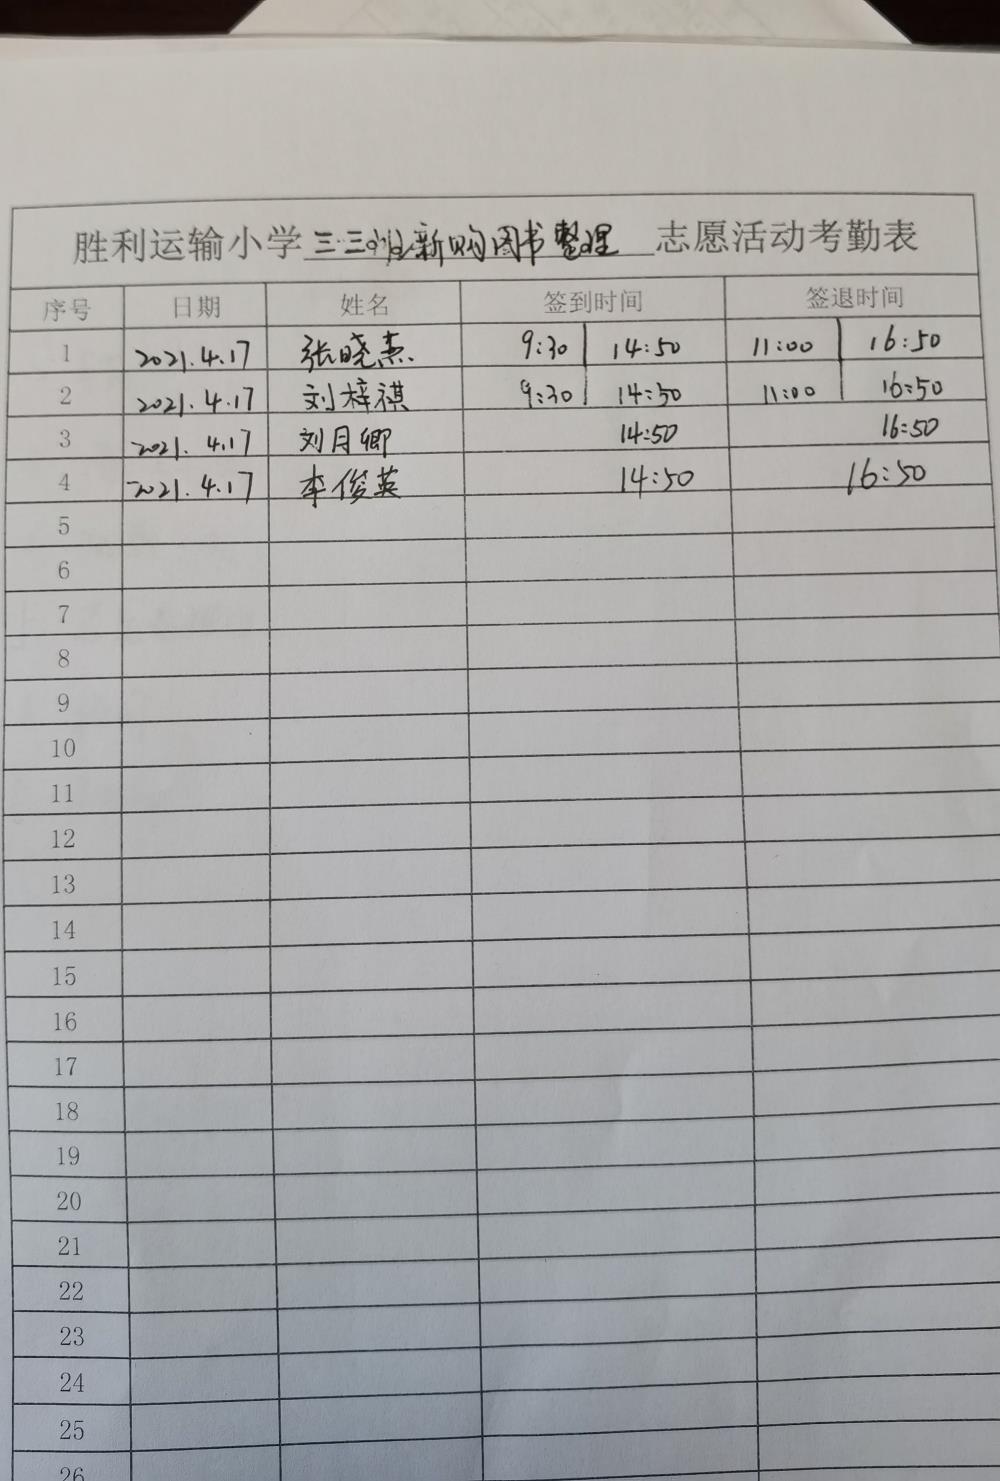 胜利运输小学三.三班新购图书整理志愿活动考勤表
序号 日期 姓名 签到时间 签退时间
1 2021.4.17 张晓燕 9:30 14:50 11:00 16:50
2 2021.4.17 刘梓祺 9:30 14:50 11:00 16:50
3 2021.4.17 刘月卿 14:50 16:50
4 2021.4.17 李俊英 14:50 16:50
5
6
7
8
9
10
11
12
13
14
15
16
17
18
19
20
21
22
23
24
25
26